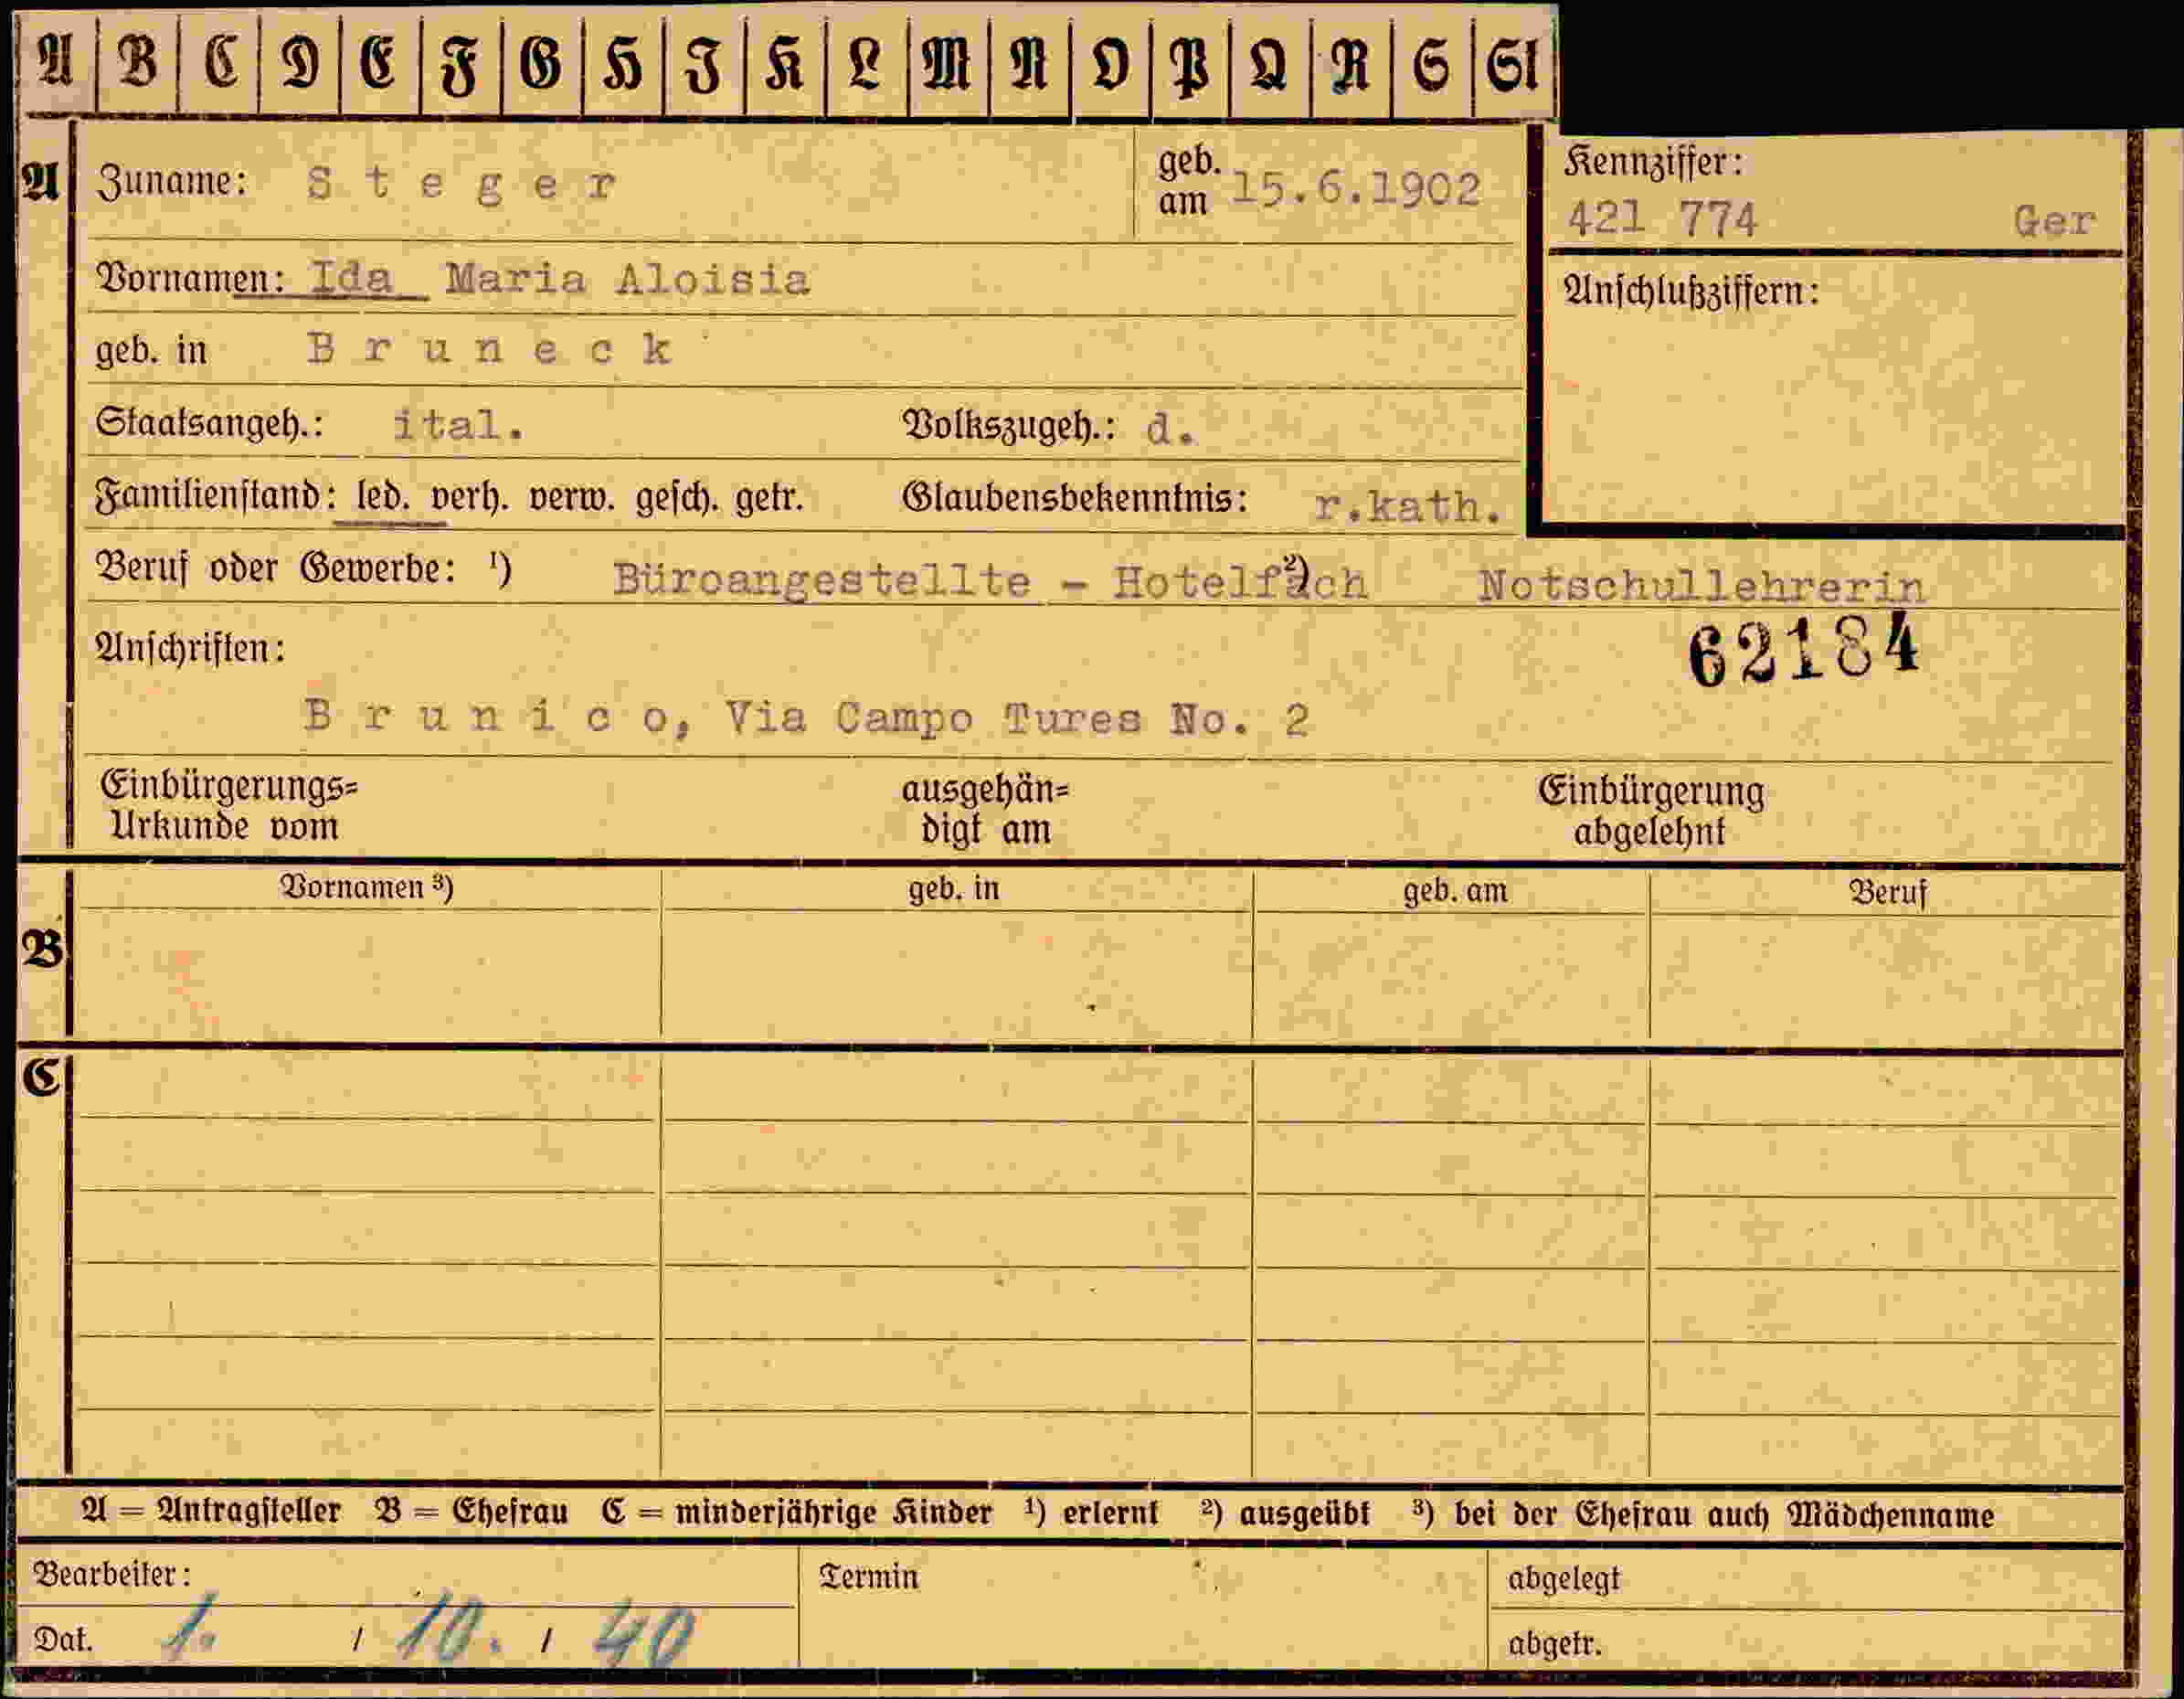 A B C D E F G H I K L M N O P Q R S St
A Zuname: Steger geb. am 15.6.1902
Kennziffer:
421 774 Ger
Vornamen: Ida Maria Aloisia
Anschlußziffern:
geb. in Bruneck
Staatsangeh.: ital. Volkszugeh.: d.
Familienstand: led. verh. verw. gesch. getr. Glaubensbekenntnis: r.kath.
Beruf oder Gewerbe: ¹) Büroangestellte - Hotelfach ²) Notschullehrerin
Anschriften:
62184
Brunico, Via Campo Tures No. 2
Einbürgerungs= ausgehän= Einbürgerung
Urkunde vom digt am abgelehnt
B Vornamen ³) geb. in geb. am Beruf
C
A = Antragsteller B = Ehefrau C = minderjährige Kinder ¹) erlernt ²) ausgeübt ³) bei der Ehefrau auch Mädchenname
Bearbeiter: Termin abgelegt
Dat. 1. / 10. / 40 abgetr.